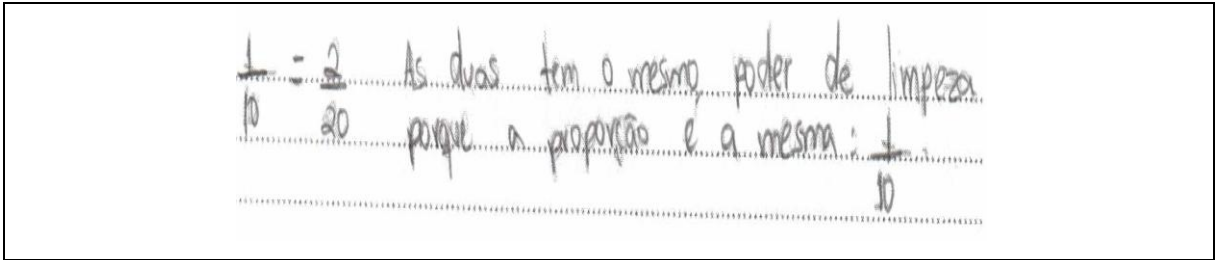 1/10 = 2/20 As duas tem o mesmo poder de limpeza
porque a proporção é a mesma: 1/10.